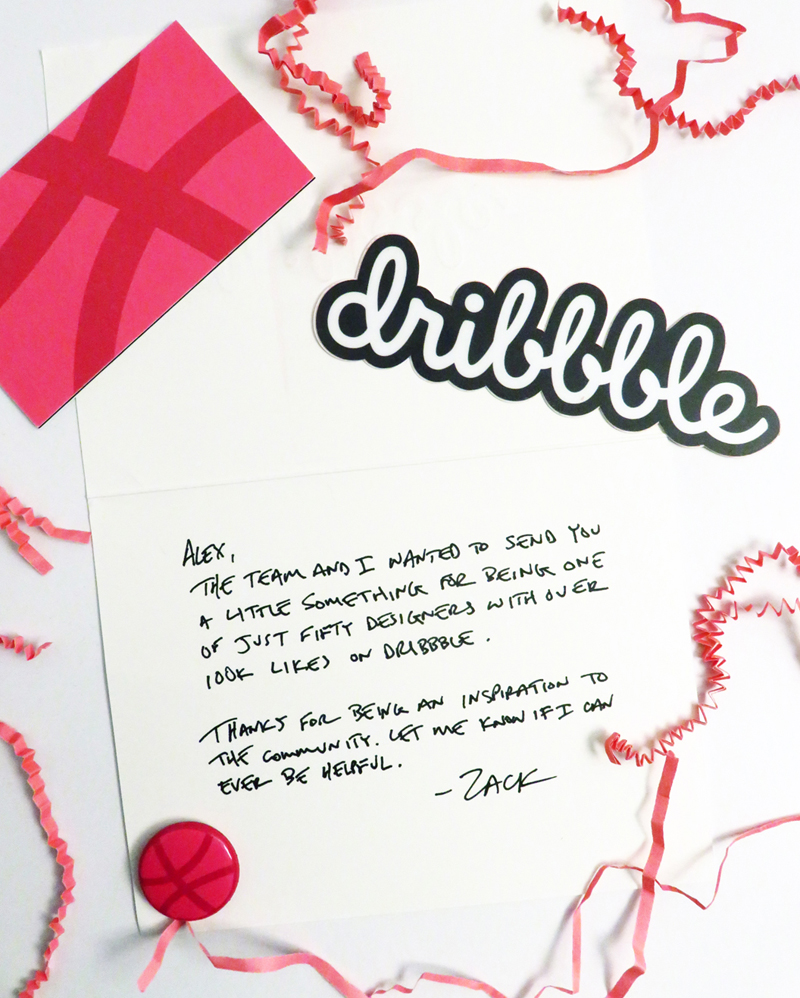 dribbble
ALEX,
THE TEAM AND I WANTED TO SEND YOU
A LITTLE SOMETHING FOR BEING ONE
OF JUST FIFTY DESIGNERS WITH OVER
100K LIKES ON DRIBBBLE.
THANKS FOR BEING AN INSPIRATION TO
THE COMMUNITY. LET ME KNOW IF I CAN
EVER BE HELPFUL.
- ZACK